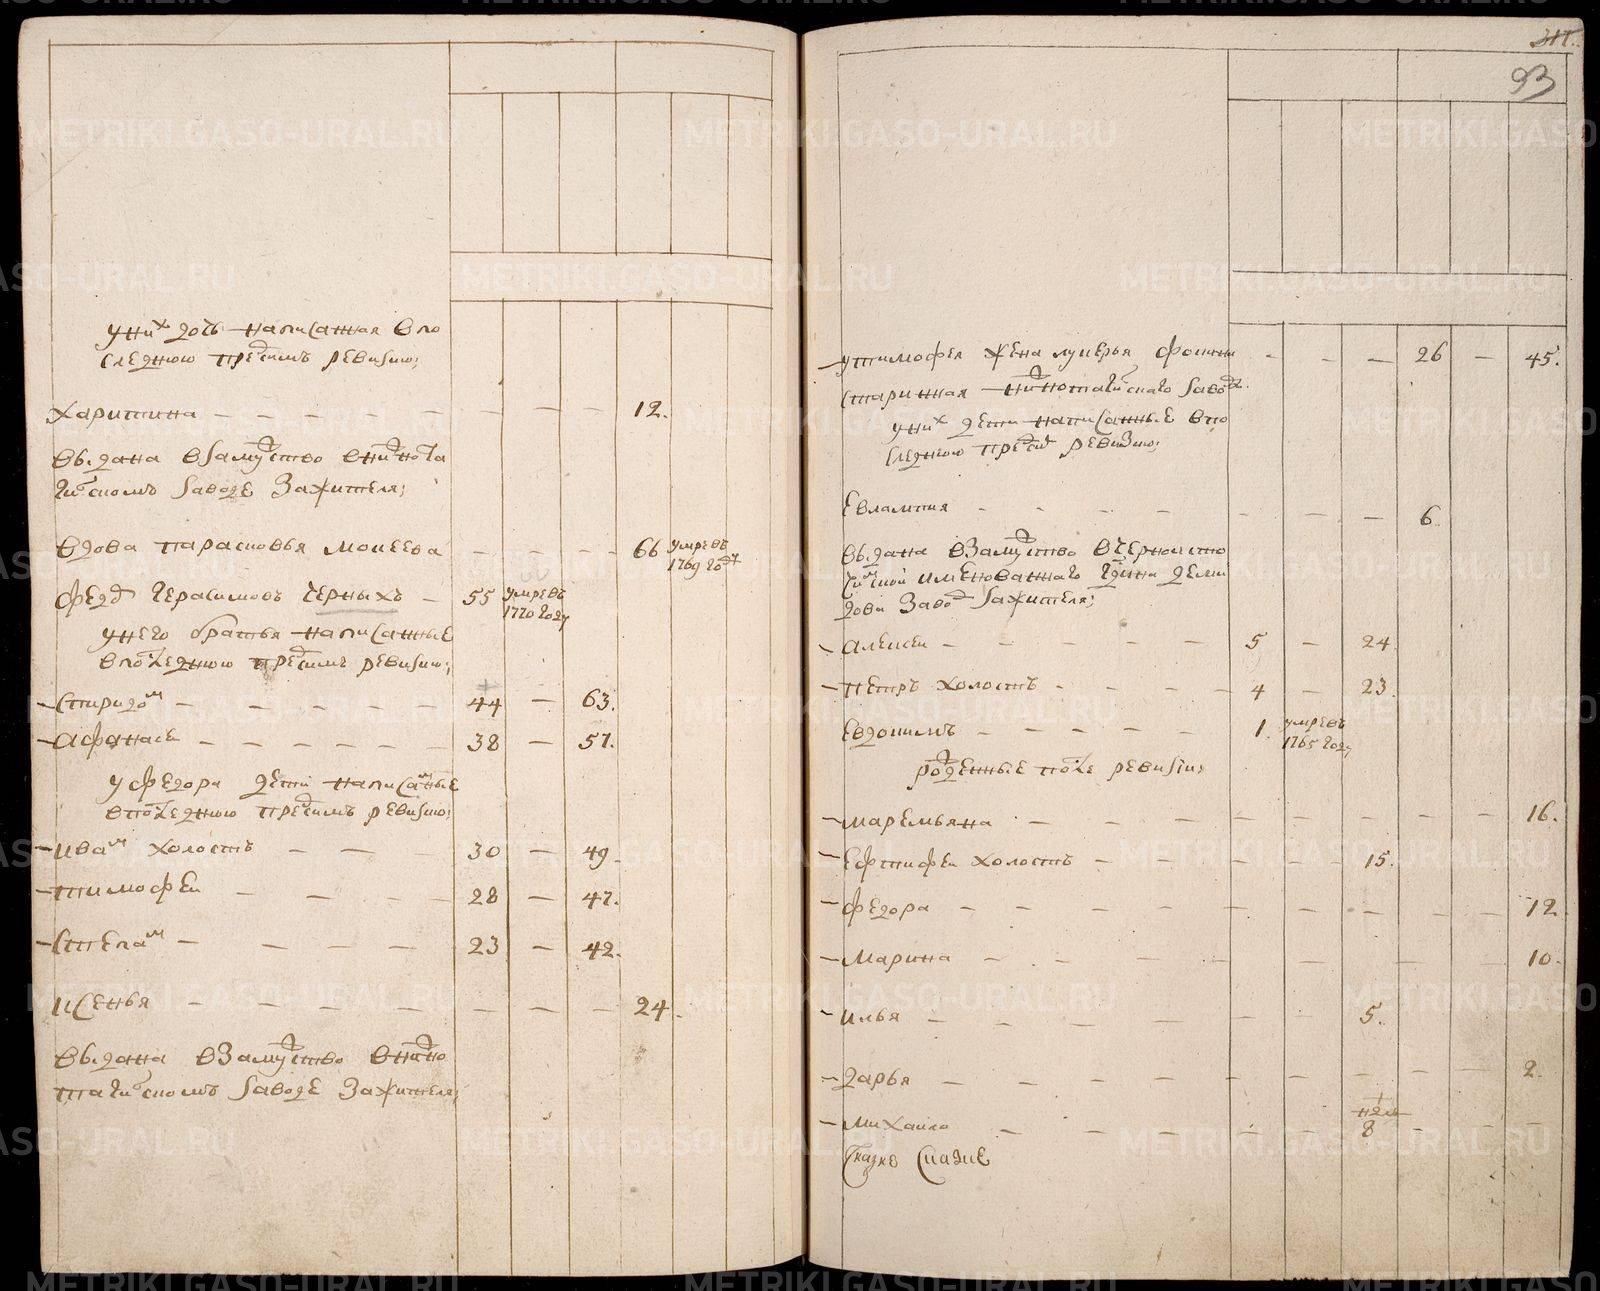 у них дочь написанная в по
следнюю пред симъ ревизию;
Харитина — — — — — — — — 12.
выдана в замужство в нижнота
гилскомъ заводе за жителя;
вдова парасковья моисеева — — — — 66 умре въ 1769 году
Федоръ Герасимовъ Черныхъ — 55 умре въ 1770 году
у него братья написанные
в последнюю пред симъ ревизию;
Спиридон — — — — — 44 — 63.
Афанасеи — — — — — — 38 — 57.
у федора дети написанные
в последнюю пред симъ ревизию;
Иван холостъ — — 30 — 49.
тимофеи — — — 28 — 47.
Степан — — — — 23 — 42.
Ксенья — — — — — — — — 24.
выдана в замужство в нижно
тагилскомъ заводе за жителя;
311.
93
у тимофея жена лукерья фокина — — — 26 — 45.
старинная нижнотагилскаго завода.
у них дети написанные в по
следнюю пред симъ ревизию;
Евлампия — — — — — — — 6.
выдана в замужство в черноисто
чинской именованнаго Гдина деми
дова завод за жителя;
алексеи — — — — — 5 — 24.
петръ холостъ — — — — 4 — 23.
Евдокимъ — — — — — 1. умре въ 1765 году
рожденные после ревизии;
маремьяна — — — — — — — — 16.
Ефтифеи холостъ — — — — — 15.
федора — — — — — — — — — — 12.
Марина — — — — — — — 10.
илья — — — — — — — 5.
дарья — — — — — — — — — — 2.
михаило — — — — — — нде 8 — — —
METRIKI.GASO-URAL.RU